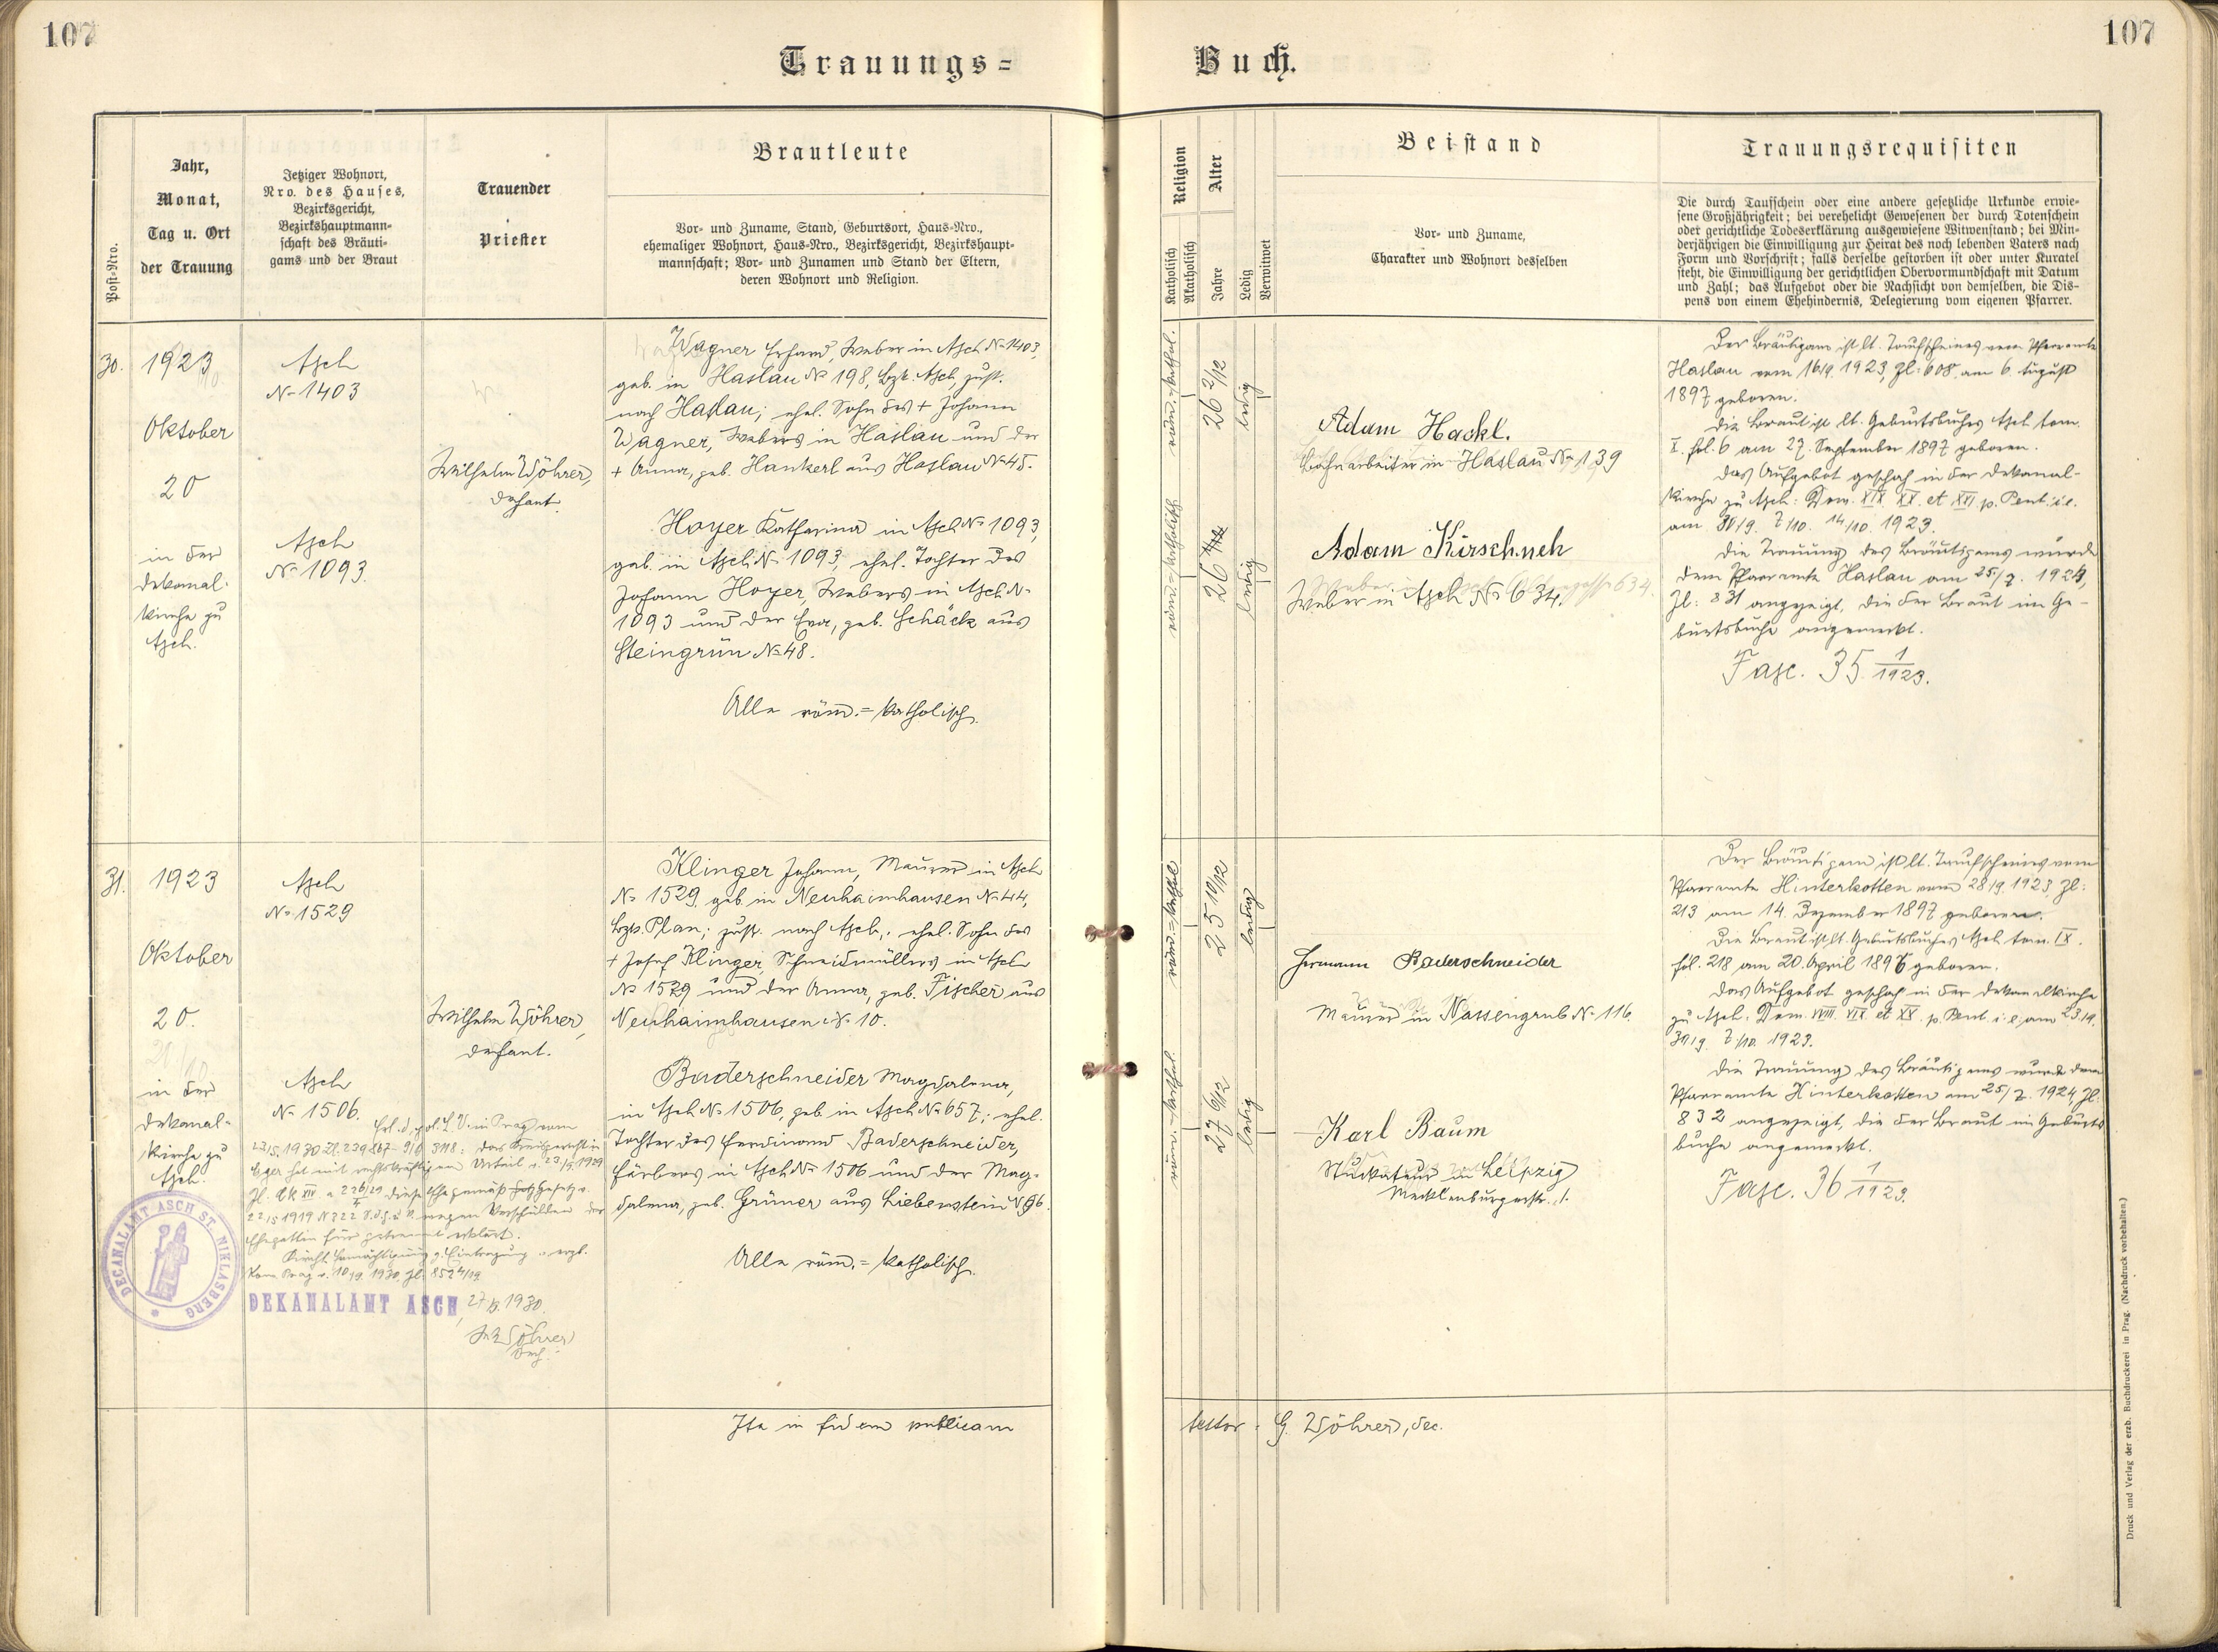 107
107
Trauungs=
Buch.
Post-Nro.
Jahr,
Monat,
Tag u. Ort
der Trauung
Jetziger Wohnort,
Nro. des Hauses,
Bezirksgericht,
Bezirkshauptmann-
schaft des Bräuti-
gams und der Braut
Trauender
Priester
Brautleute
Vor- und Zuname, Stand, Geburtsort, Haus-Nro.,
ehemaliger Wohnort, Haus-Nro., Bezirksgericht, Bezirkshaupt-
mannschaft; Vor- und Zunamen und Stand der Eltern,
deren Wohnort und Religion.
Religion
Katholisch
Akatholisch
Alter
Jahre
Ledig
Verwitwet
Beistand
Vor- und Zuname,
Charakter und Wohnort desselben
Trauungsrequisiten
Die durch Taufschein oder eine andere gesetzliche Urkunde erwie-
sene Großjährigkeit; bei verehelicht Gewesenen der durch Totenschein
oder gerichtliche Todeserklärung ausgewiesene Witwenstand; bei Min-
derjährigen die Einwilligung zur Heirat des noch lebenden Vaters nach
Form und Vorschrift; falls derselbe gestorben ist oder unter Kuratel
steht, die Einwilligung der gerichtlichen Obervormundschaft mit Datum
und Zahl; das Aufgebot oder die Nachsicht von demselben, die Dis-
pens von einem Ehehindernis, Delegierung vom eigenen Pfarrer.
30.
1923
Oktober
20
in der
Dekanal-
kirche zu
Asch.
Asch
No 1403
Asch
No 1093.
Wilhelm Wöhrer,
Dechant.
Wagner Erhard, Weber in Asch No 1403,
geb. in Haslau No 198, Bzk. Asch, zust.
nach Haslau; ehel. Sohn des + Johann
Wagner, Webers in Haslau und der
+ Anna, geb. Hankerl aus Haslau No 45.
Hoyer Katharina in Asch No 1093,
geb. in Asch No 1093, ehel. Tochter des
Johann Hoyer, Webers in Asch No
1093 und der Eva, geb. Schäck aus
Steingrün No 48.
Alle röm.=katholisch.
röm.=kathol.
26 2/12
ledig
röm.=katholisch
26
ledig
Adam Hackl.
Bahnarbeiter in Haslau No 139
Adam Kirschneck
Weber in Asch No 634.
Der Bräutigam ist lt. Taufscheines vom Pfarramte
Haslau vom 16/9. 1923, Zl: 608 am 6. August
1897 geboren.
Die Braut ist lt. Geburtsbuches Asch tom.
X. fol. 6 am 27. September 1897 geboren.
Das Aufgebot geschah in der Dekanal-
kirche zu Asch: Dom. XIX. XX. et XXI p. Pent. i.e.
am 30/9. 7/10. 14/10. 1923.
Die Trauung des Bräutigams wurde
dem Pfarramte Haslau am 25/2. 1924,
Zl: 831 angezeigt, die der Braut im Ge-
burtsbuche angemerkt.
Fasc. 35 1/1923.
31.
1923
Oktober
20.
in der
Dekanal-
kirche zu
Asch.
Asch
No 1529
Asch
No 1506.
Wilhelm Wöhrer,
Dechant.
Klinger Johann, Maurer in Asch
No 1529, geb. in Neuhaimhausen No 44,
Bzk. Plan; zust. nach Asch; ehel. Sohn des
+ Josef Klinger, Schneidmüllers in Asch
No 1529 und der Anna, geb. Fischer aus
Neuhaimhausen No 10.
Baderschneider Magdalena,
in Asch No 1506, geb. in Asch No 657; ehel.
Tochter des Ferdinand Baderschneider,
Färbers in Asch No 1506 und der Mag-
dalena, geb. Grüner aus Liebenstein No 96.
Alle röm.=katholisch.
röm.=kathol
25 10/12
ledig
röm.=kathol.
27 6/12
ledig
Hermann Baderschneider
Maurer in Nassengrub No 116.
Karl Baum
Stuckateur in Leipzig
Mecklenburgerstr. 1.
Der Bräutigam ist lt. Taufscheines vom
Pfarramte Hinterkotten vom 28/9. 1923, Zl:
213 am 14. Dezember 1897 geboren.
Die Braut ist lt. Geburtsbuches Asch tom. IX.
fol. 218 am 20. April 1896 geboren.
Das Aufgebot geschah in der Dekanalkirche
zu Asch: Dom. XVIII. XIX et XX. p. Pent. i. e. am 23/9.
30/9. 7/10. 1923.
Die Trauung des Bräutigams wurde dem
Pfarramte Hinterkotten am 25/2. 1924, Zl.
832 angezeigt, die der Braut im Geburts
buche angemerkt.
Fasc. 36 1/1923.
Erl. d. pol. L. V. in Prag vom
23/5. 1930 Zl. 239 887 : das Kreisgericht in
Eger hat mit rechtskräftigem Urteil v. 23/5. 1929
Zl. Ck XIV a 226/29 diese Ehe gemäß Ges.
22/5 1919 N 322 S.d.G.u.V. wegen Verschulden der
Ehegatten für getrennt erklärt.
Kirchl. Ermächtigung z. Eintragung v. erzb.
Kons. Prag v. 10/9. 1930, Zl.
DECANALAMT ASCH ST. NIKLASBERG
DEKANALAMT ASCH,
27/9. 1930.
W. Wöhrer
Dech.
Ita in fidem publicam
testor: G. Wöhrer, dec.
Druck und Verlag der erzb. Buchdruckerei in Prag. (Nachdruck vorbehalten.)